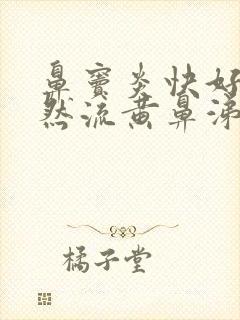 鼻窦炎快好
然流黄鼻涕
橘子堂